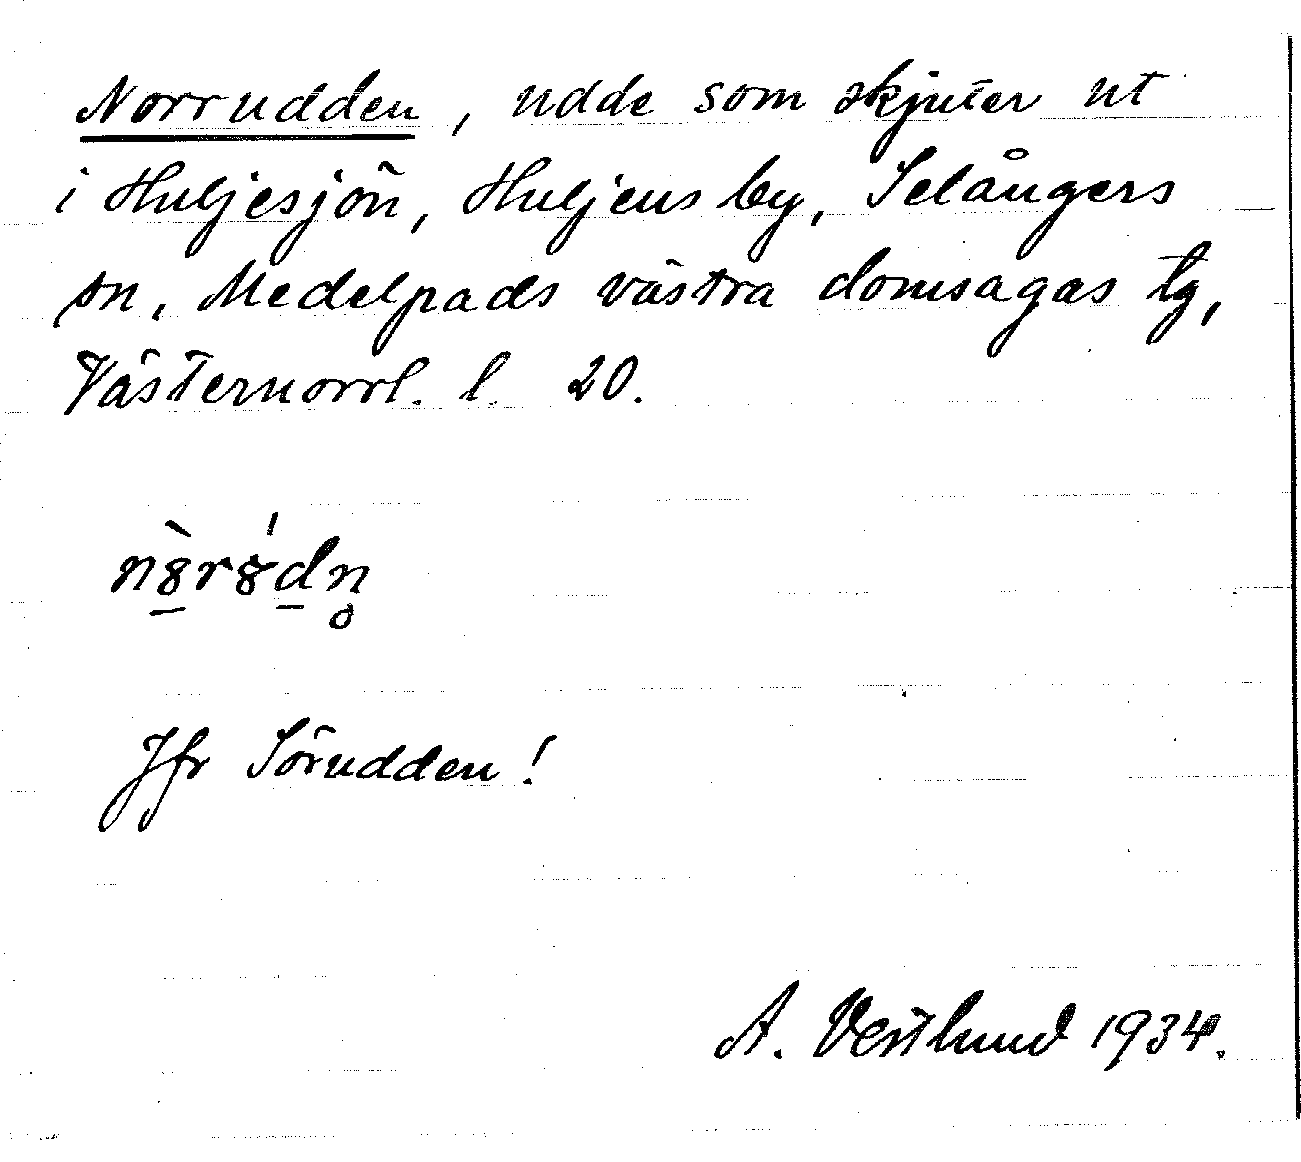 Norrudden, udde som skjuter ut
i Huljesjön, Huljens by, Selångers
sn, Medelpads västra domsagas tg,
Västernorrl. l. 20.
n8̠̀r8́d̠n̥
Jfr Sörudden!
A. Vestlund 1934.